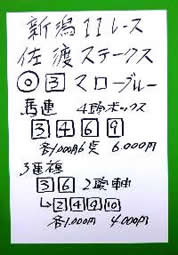 新潟11レース
佐渡ステークス
◎ 3 マローブルー
馬連 4頭ボックス
3 4 6 9
各1,000円6点 6.000円
3連複
3 6 2頭軸
↳ 2 4 9 10
各1,000円 4.000円